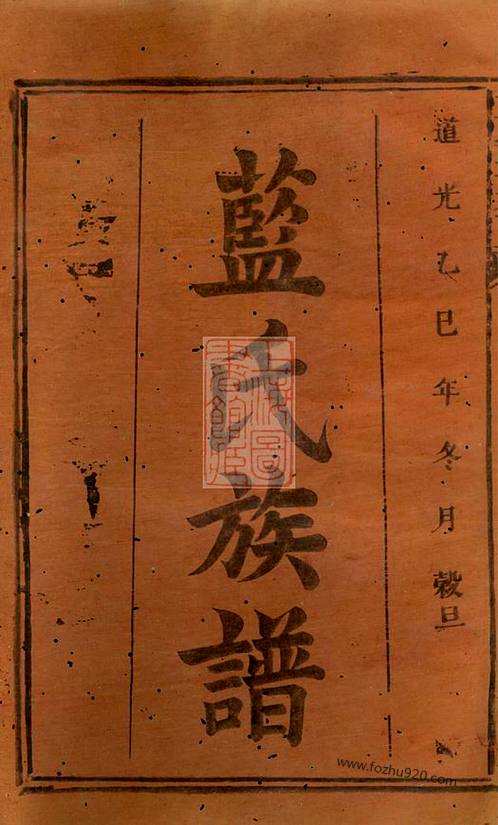 道光乙巳年冬月穀旦
藍氏族譜
上海圖書館藏
www.fozhu920.com